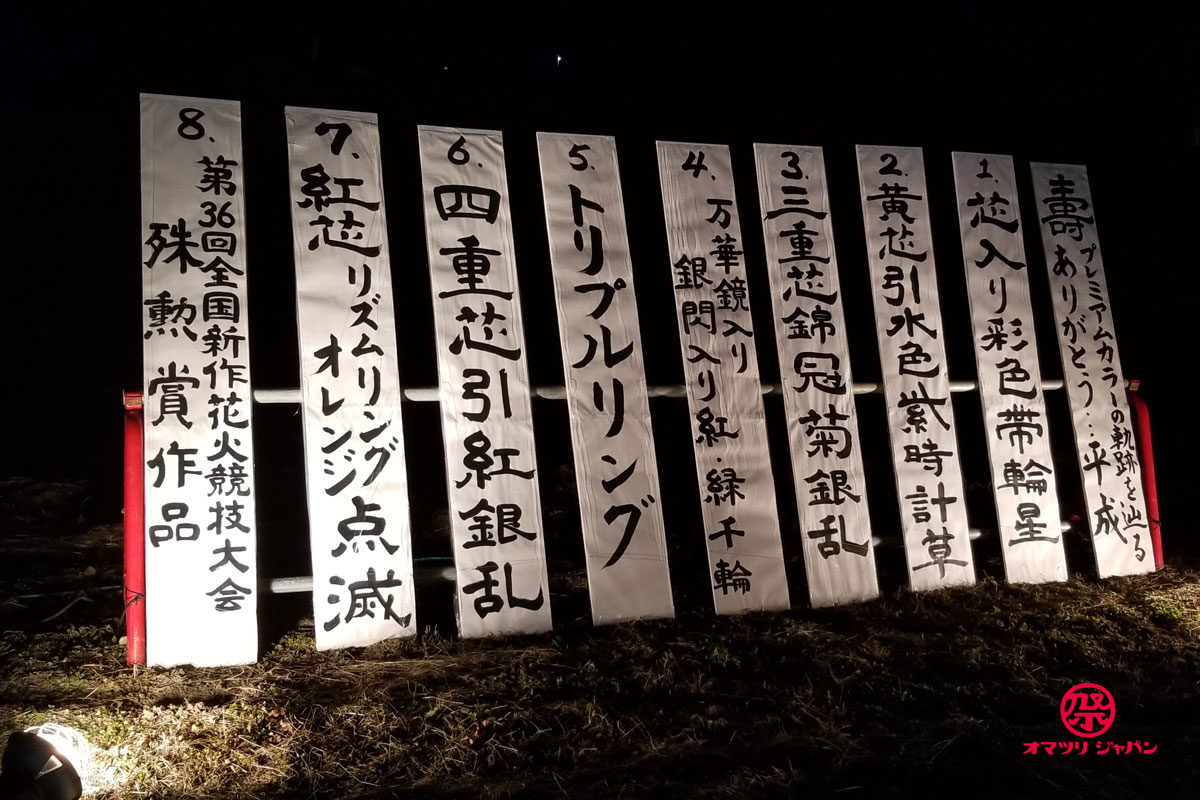 壽 プレミアムカラーの軌跡を辿る
ありがとう…平成
1. 芯入り彩色帯輪星
2. 黄芯引水色紫時計草
3. 三重芯錦冠菊銀乱
4. 万華鏡入り
銀閃入り紅・緑千輪
5. トリプルリング
6. 四重芯引紅銀乱
7. 紅芯リズムリング
オレンジ点滅
8. 第36回全国新作花火競技大会
殊勲賞作品
祭
オマツリジャパン